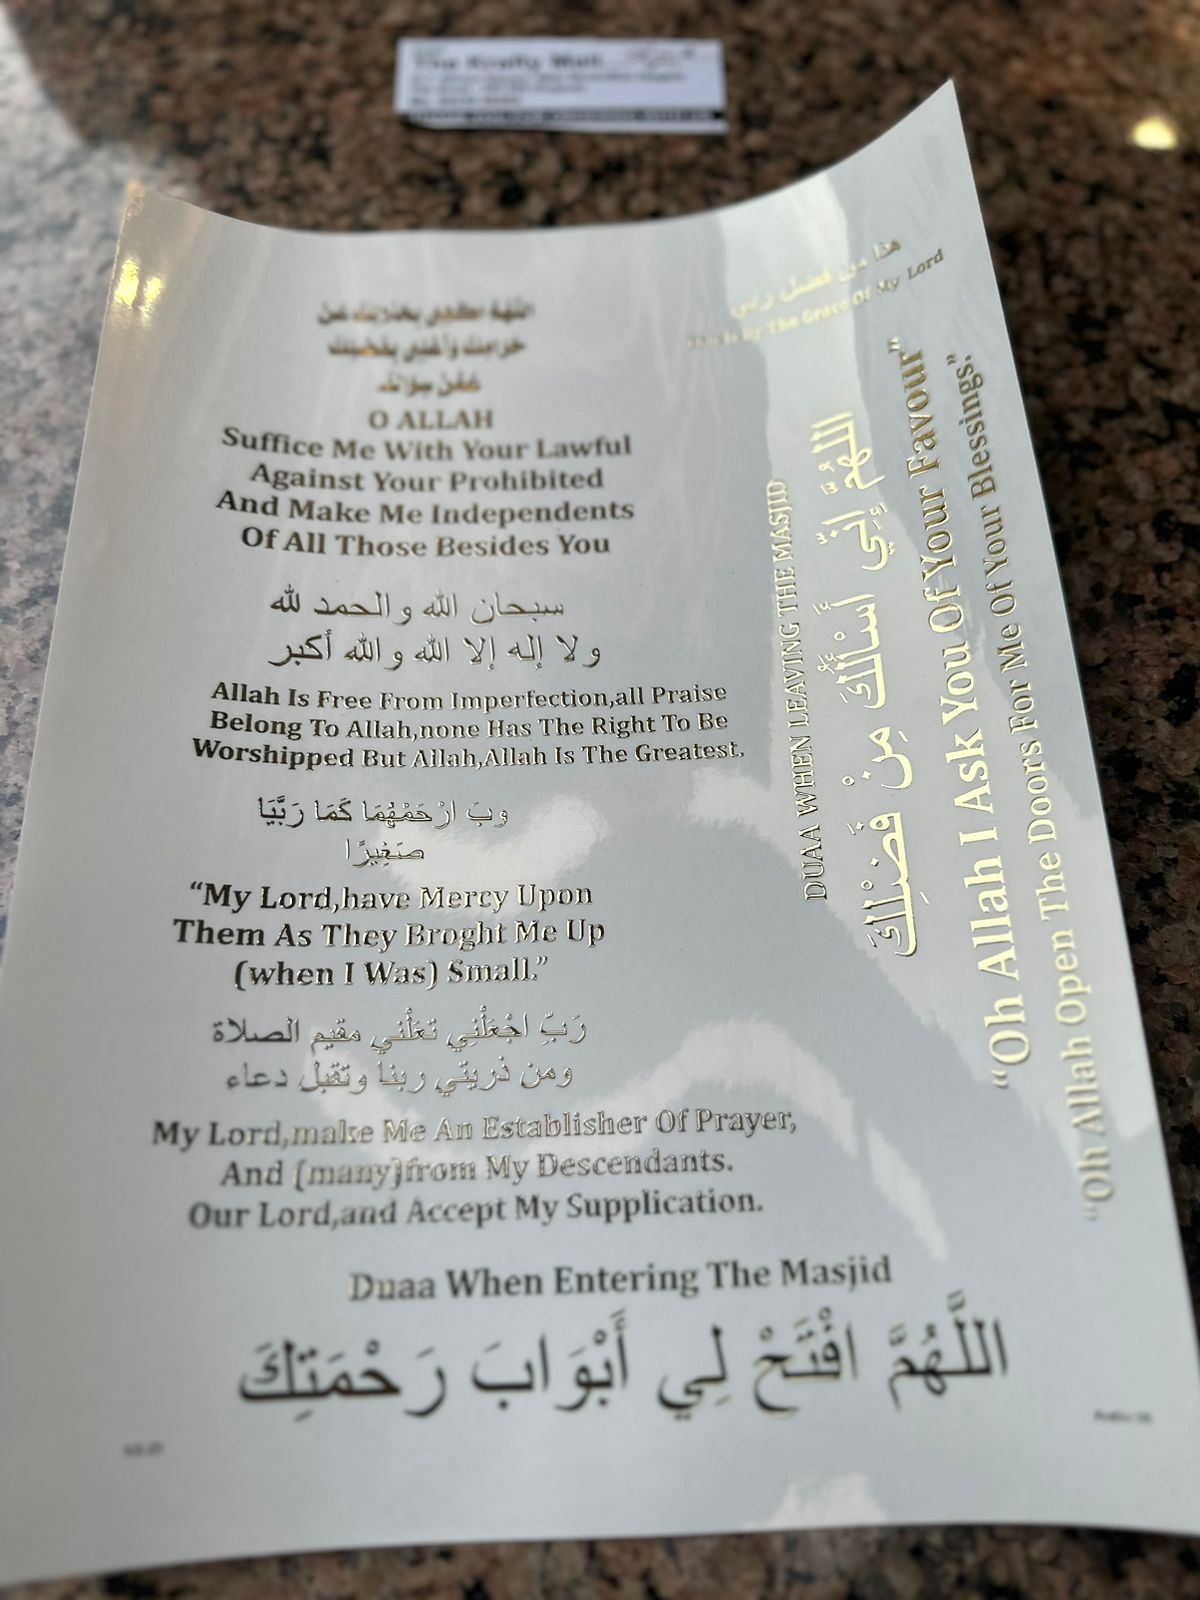 The Krafty Mall
اللهم اكفني بحلالك عن
حرامك وأغنني بفضلك
عمن سواك
O ALLAH
Suffice Me With Your Lawful
Against Your Prohibited
And Make Me Independents
Of All Those Besides You
سبحان الله والحمد لله
ولا إله إلا الله والله أكبر
Allah Is Free From Imperfection,all Praise
Belong To Allah,none Has The Right To Be
Worshipped But Allah,Allah Is The Greatest.
وبَ ارْحَمْهُمَا كَمَا رَبَّيَا
صَغِيرًا
“My Lord,have Mercy Upon
Them As They Broght Me Up
(when I Was) Small.”
رَبِّ اجْعَلْنِي مقيم الصلاة
ومن ذريتي ربنا وتقبل دعاء
My Lord,make Me An Establisher Of Prayer,
And (many)from My Descendants.
Our Lord,and Accept My Supplication.
Duaa When Entering The Masjid
اللَّهُمَّ افْتَحْ لِي أَبْوَابَ رَحْمَتِكَ
هذا من فضل ربي
This Is By The Grace Of My Lord
DUAA WHEN LEAVING THE MASJID
اللهُمَّ اِنِّي أَسْأَلُكَ مِنْ فَضْلِكَ
“Oh Allah I Ask You Of Your Favour”
“Oh Allah Open The Doors For Me Of Your Blessings.”